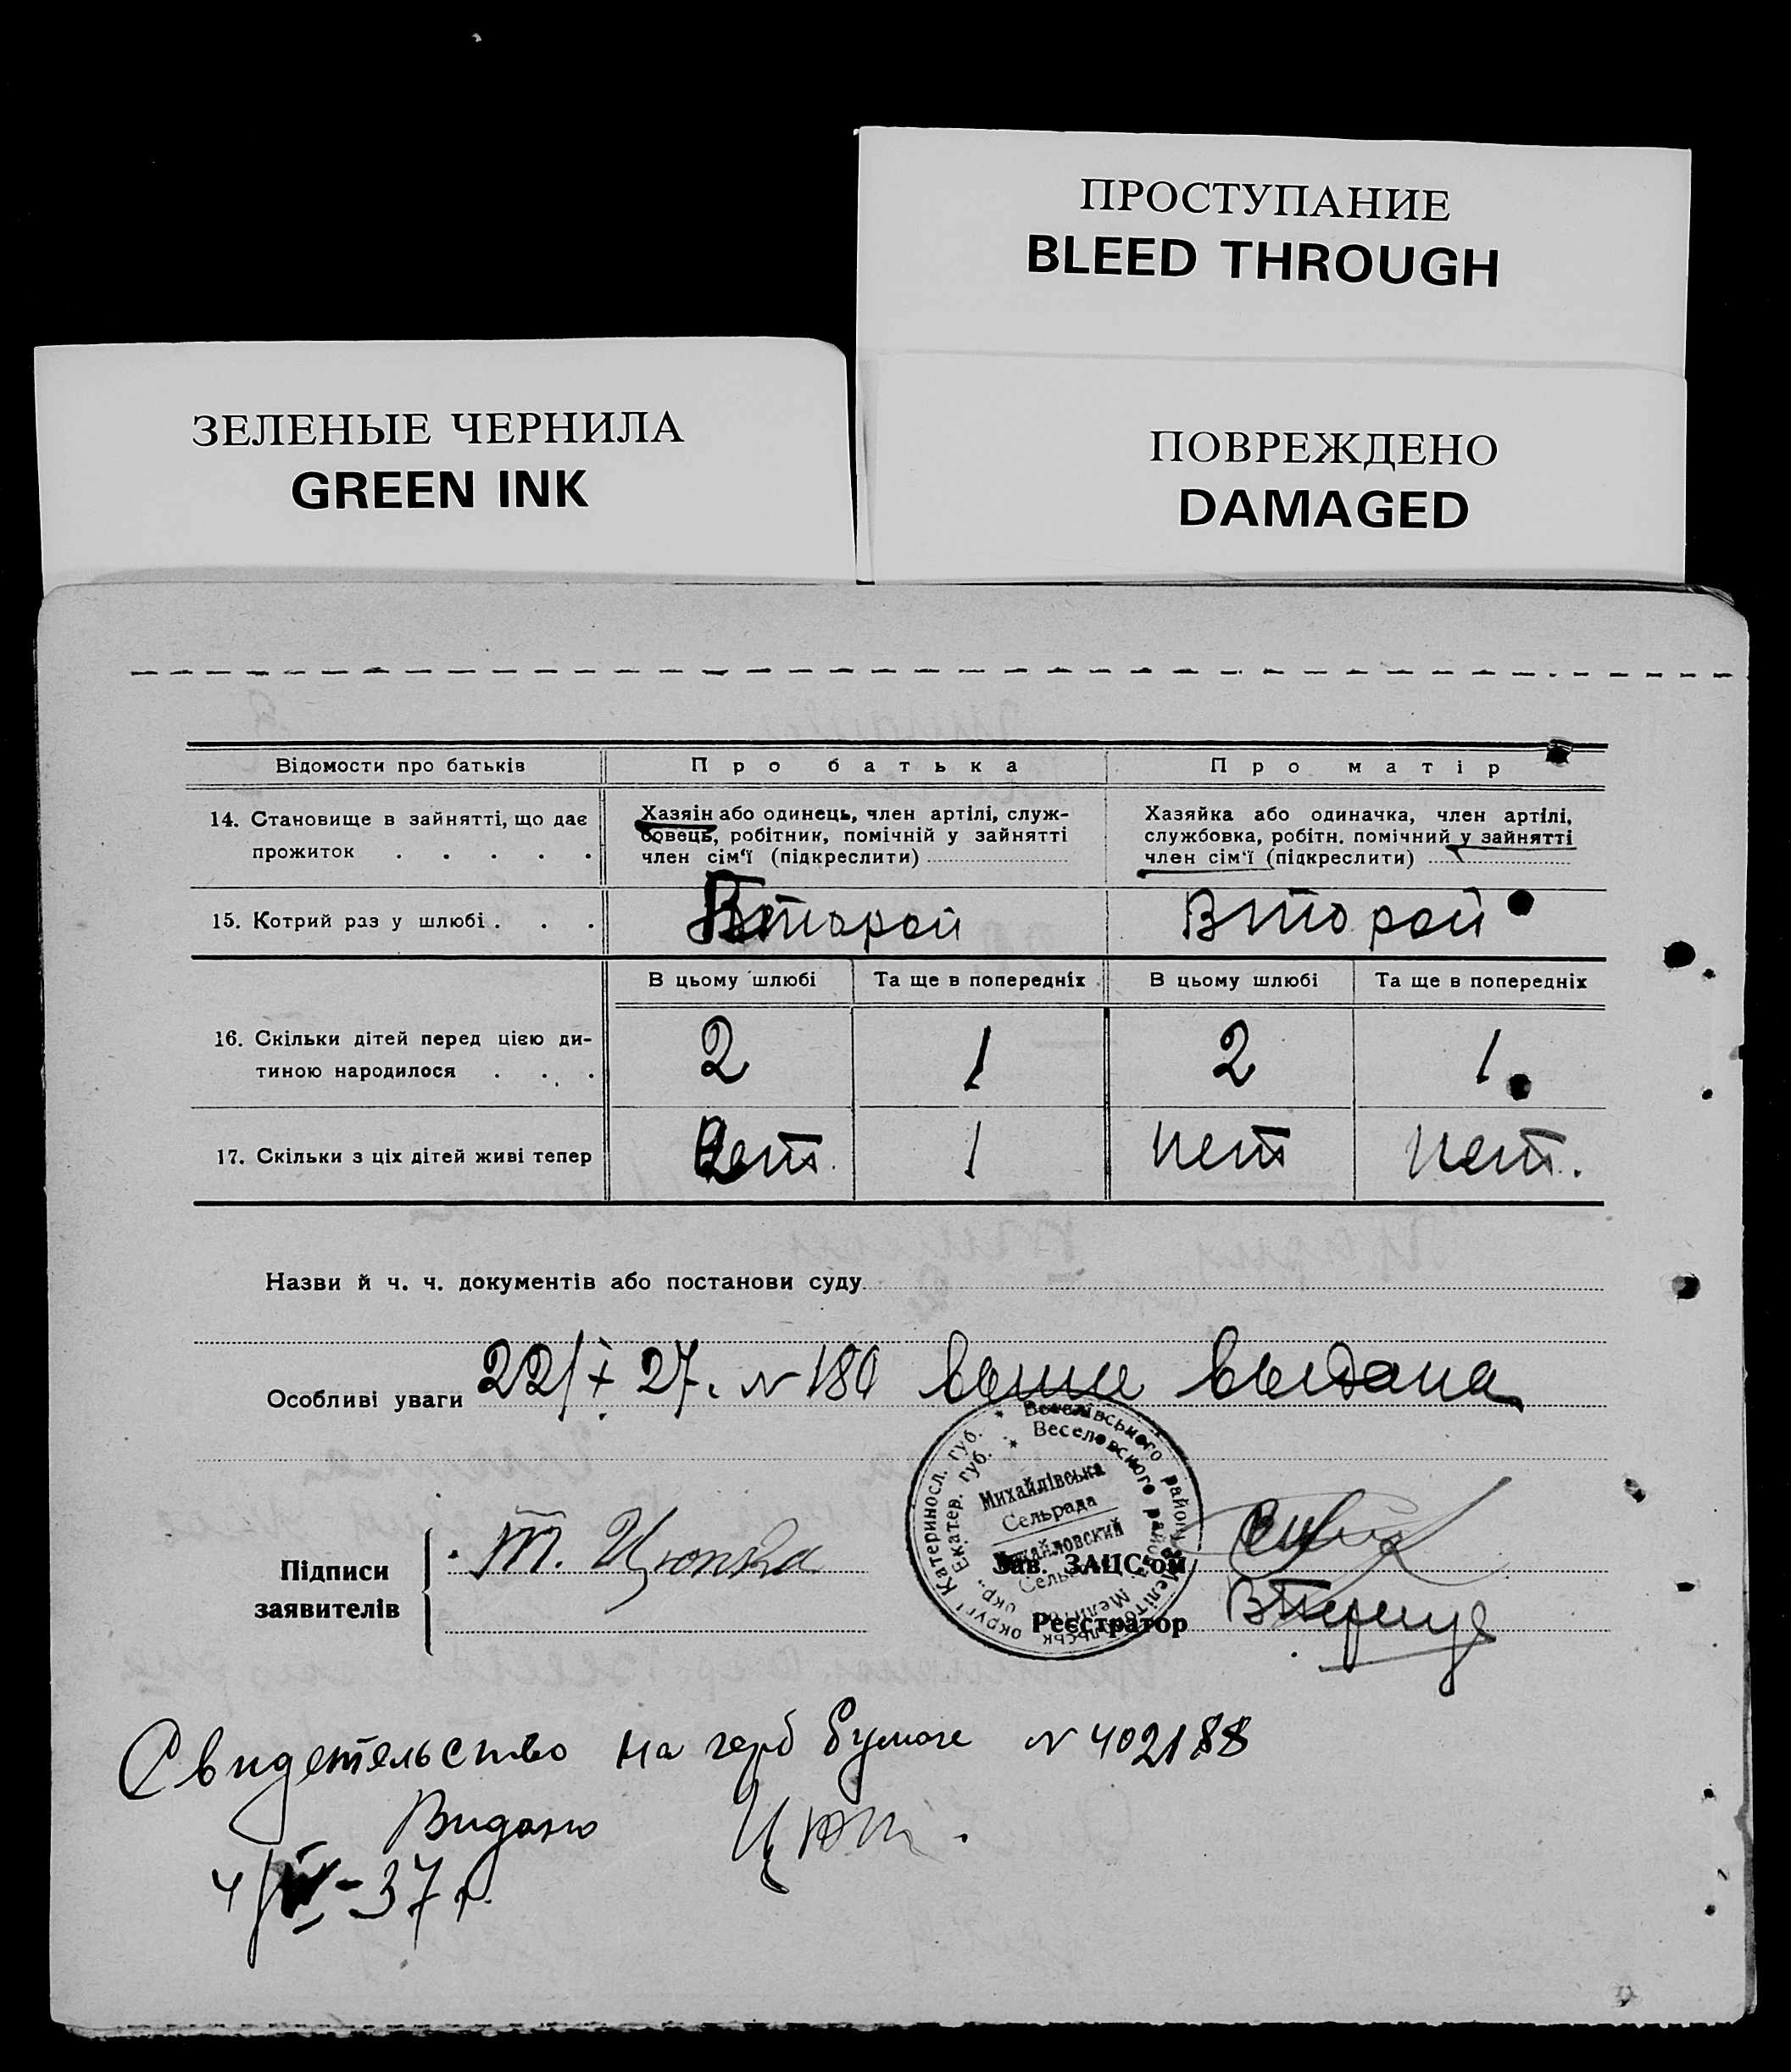 ПРОСТУПАНИЕ
BLEED THROUGH
ЗЕЛЕНЫЕ ЧЕРНИЛА
GREEN INK
ПОВРЕЖДЕНО
DAMAGED
Відомости про батьків
Про батька
Про матір
14. Становище в зайнятті, що дає
прожиток . . . . .
Хазяін або одинець, член артілі, служ-
бовець, робітник, помічній у зайнятті
член сім'ї (підкреслити)
Хазяйка або одиначка, член артілі,
службовка, робітн. помічний у зайнятті
член сім'ї (підкреслити)
15. Котрий раз у шлюбі . . .
Второй
Второй
В цьому шлюбі
Та ще в попередніх
В цьому шлюбі
Та ще в попередніх
16. Скільки дітей перед цією ди-
тиною народилося . . .
2
1
2
1.
17. Скільки з ціх дітей живі тепер
нет
1
нет
нет.
Назви й ч. ч. документів або постанови суду
Особливі уваги 22/X 27. № 180 выдана
Веселівського району Мелітопільськ округ. Катериносл. губ.
Веселовского района Мелит. окр., Екатер. губ.
Михайлівська
Сельрада
Михайловский
Сельс
Підписи
заявителів
Т. Цюпка
Зав. ЗАЦС'ом
Реєстратор
Свидетельство на герб бумаге № 402188
Видано
4/ -37 г.